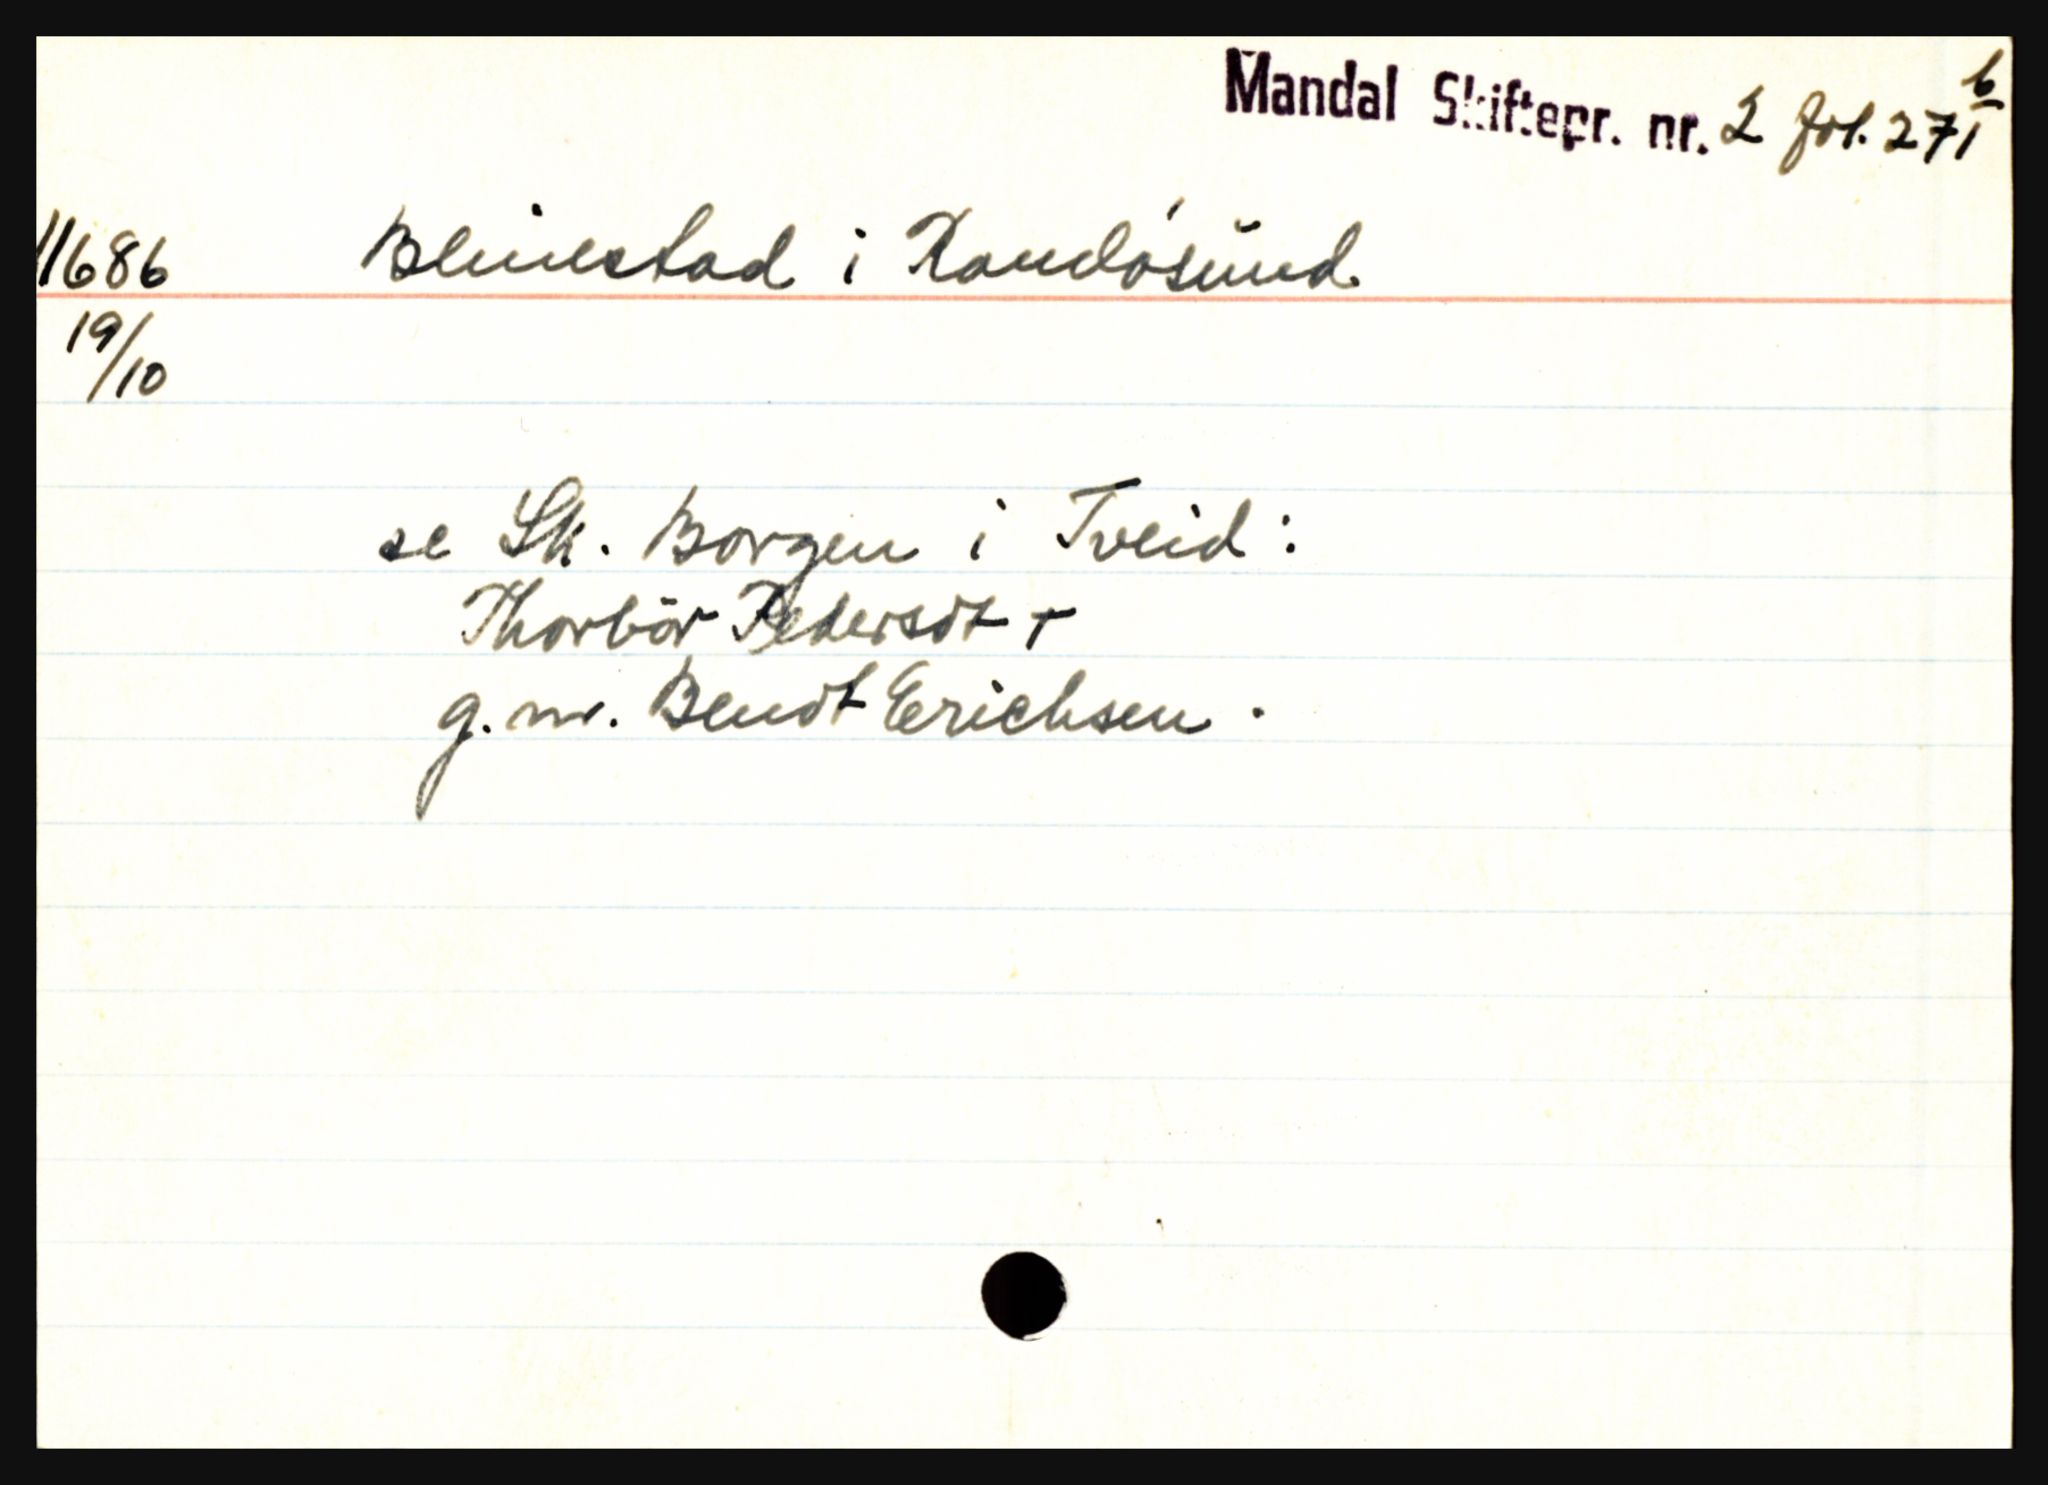 Mandal Skiftepr. nr. 2 fol. 271 b
1686 Blinestad i Randösund
19/10
se Sk. Borgen i Tveid:
Thorbör Pedersdt +
g. m. Bendt Erichsen.